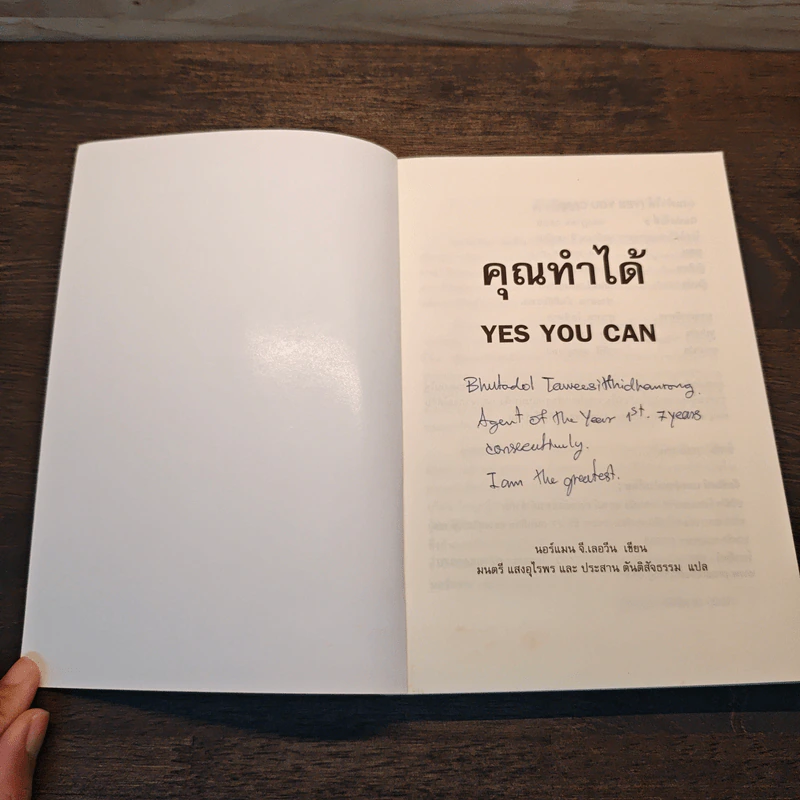 คุณทำได้
YES YOU CAN
Bhutadol Taweesitthidhamrong.
Agent of the Year 1st. 7 years
consecutively.
I am the greatest.
นอร์แมน จี.เลอวีน เขียน
มนตรี แสงอุไรพร และ ประสาน ตันติสัจธรรม แปล